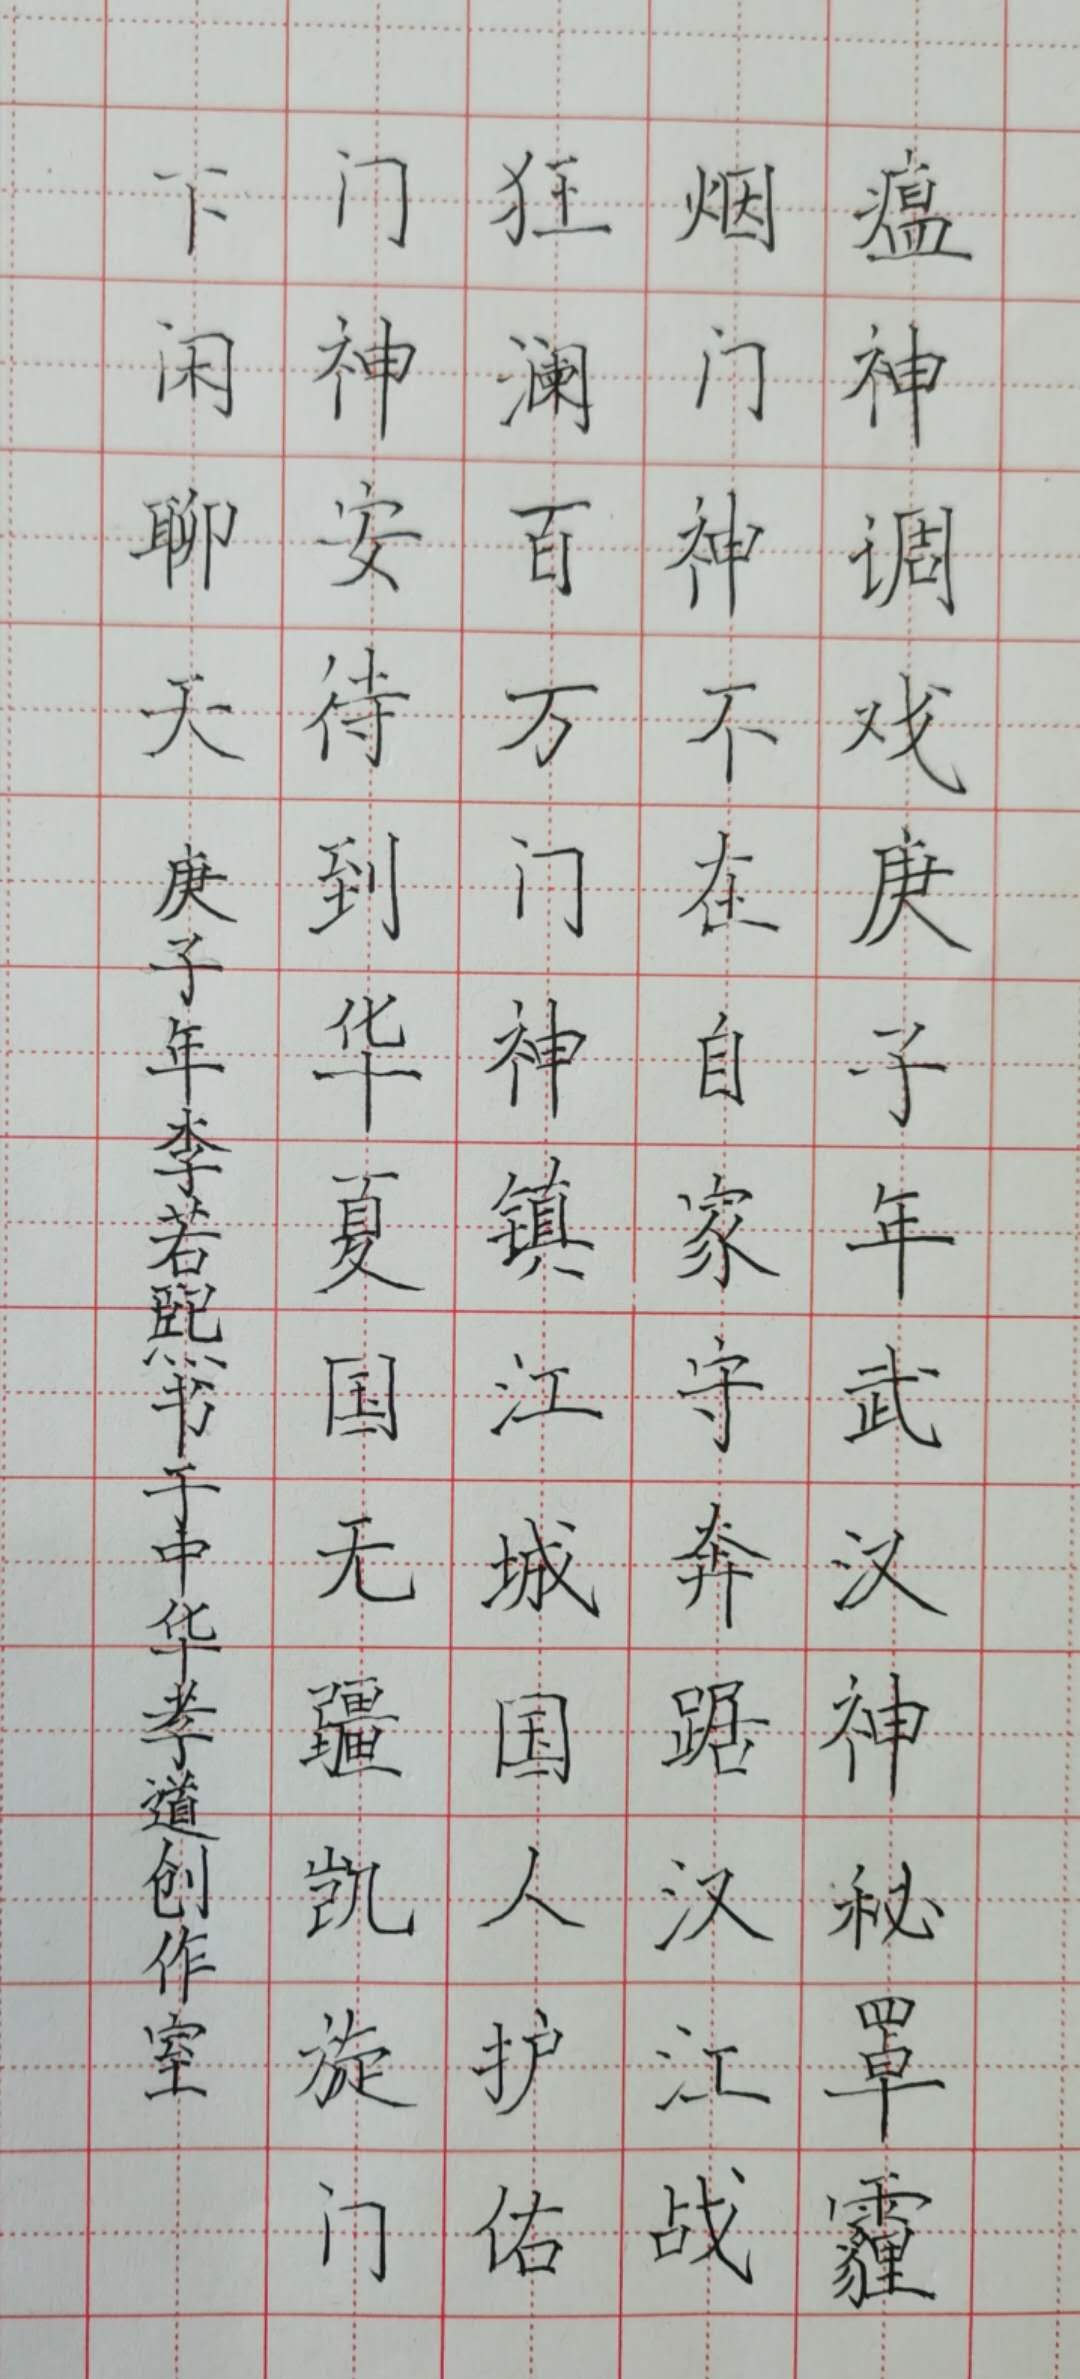 瘟神调戏庚子年武汉神秘罩霾
烟门神不在自家守奔踞汉江战
狂澜百万门神镇江城国人护佑
门神安待到华夏国无疆凯旋门
下闲聊天 庚子年李若熙书于中华孝道创作室